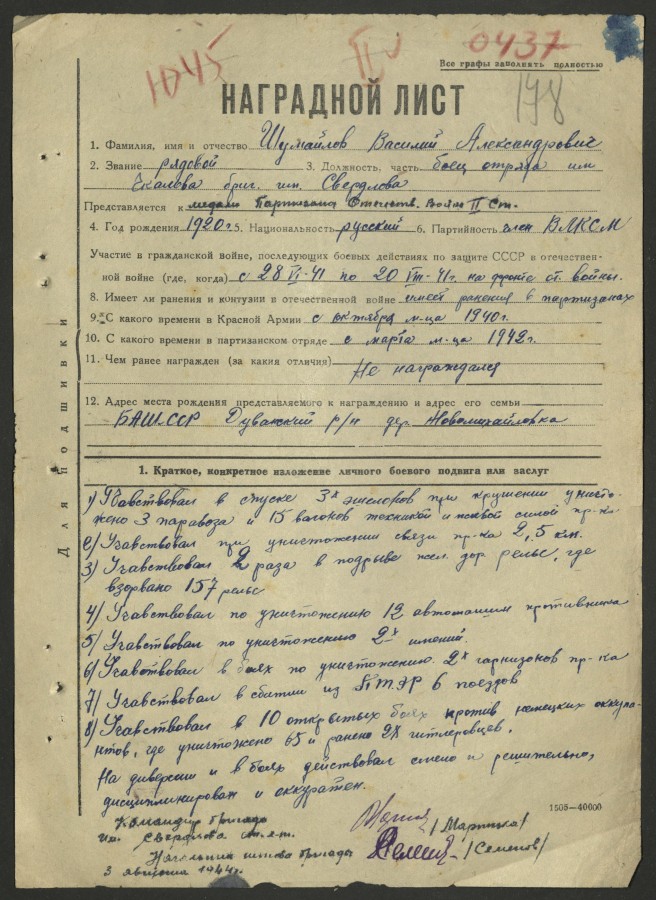 1045
II
0437
Все графы заполнять полностью
198
НАГРАДНОЙ ЛИСТ
1. Фамилия, имя и отчество Шумайлов Василий Александрович
2. Звание рядовой 3. Должность, часть боец отряда им
Чкалова бриг. им. Свердлова
Представляется к медали Партизана Отечеств. Войны II Ст.
4. Год рождения 1920 г. 5. Национальность русский 6. Партийность член ВЛКСМ
Участие в гражданской войне, последующих боевых действиях по защите СССР в отечествен-
ной войне (где, когда) с 28 VI-41 по 20 VIII-41 г. на фронте от. войны.
8. Имеет ли ранения и контузии в отечественной войне имеет ранения в партизанах
9. С какого времени в Красной Армии с октября м-ца 1940 г.
10. С какого времени в партизанском отряде с марта м-ца 1942 г.
11. Чем ранее награжден (за какия отличия) Не награждался
12. Адрес места рождения представляемого к награждению и адрес его семьи
БАШ.ССР Дуванский р/н дер. Новомихайловка
Для подшивки
1. Краткое, конкретное изложение личного боевого подвига или заслуг
1) Учавствовал в спуске 3х эшелонов при крушении уничто-
жено 3 паравоза и 15 вагонов техникой и живой силой пр-ка
2) Учавствовал при уничтожении связи пр-ка 2,5 км.
3) Учавствовал 2 раза в подрыве жел. дор. рельс, где
взорвано 157 рельс
4) Учавствовал по уничтожению 12 автомашин противника
5) Учавствовал по уничтожению 2х имений.
6) Учавствовал в боях по уничтожению 2х гарнизонов пр-ка
7) Учавствовал в сбитии из ПТЭР 6 поездов
8) Учавствовал в 10 открытых боях против немецких оккупа-
нтов, где уничтожено 65 и ранено 28 гитлеровцев.
На диверсии и в боях действовал смело и решительно,
дисциплинирован и аккуратен.
1505—40000
Командир бригады
им. Свердлова
Начальник штаба бригады /Семенов/
3 августа 1944 г.